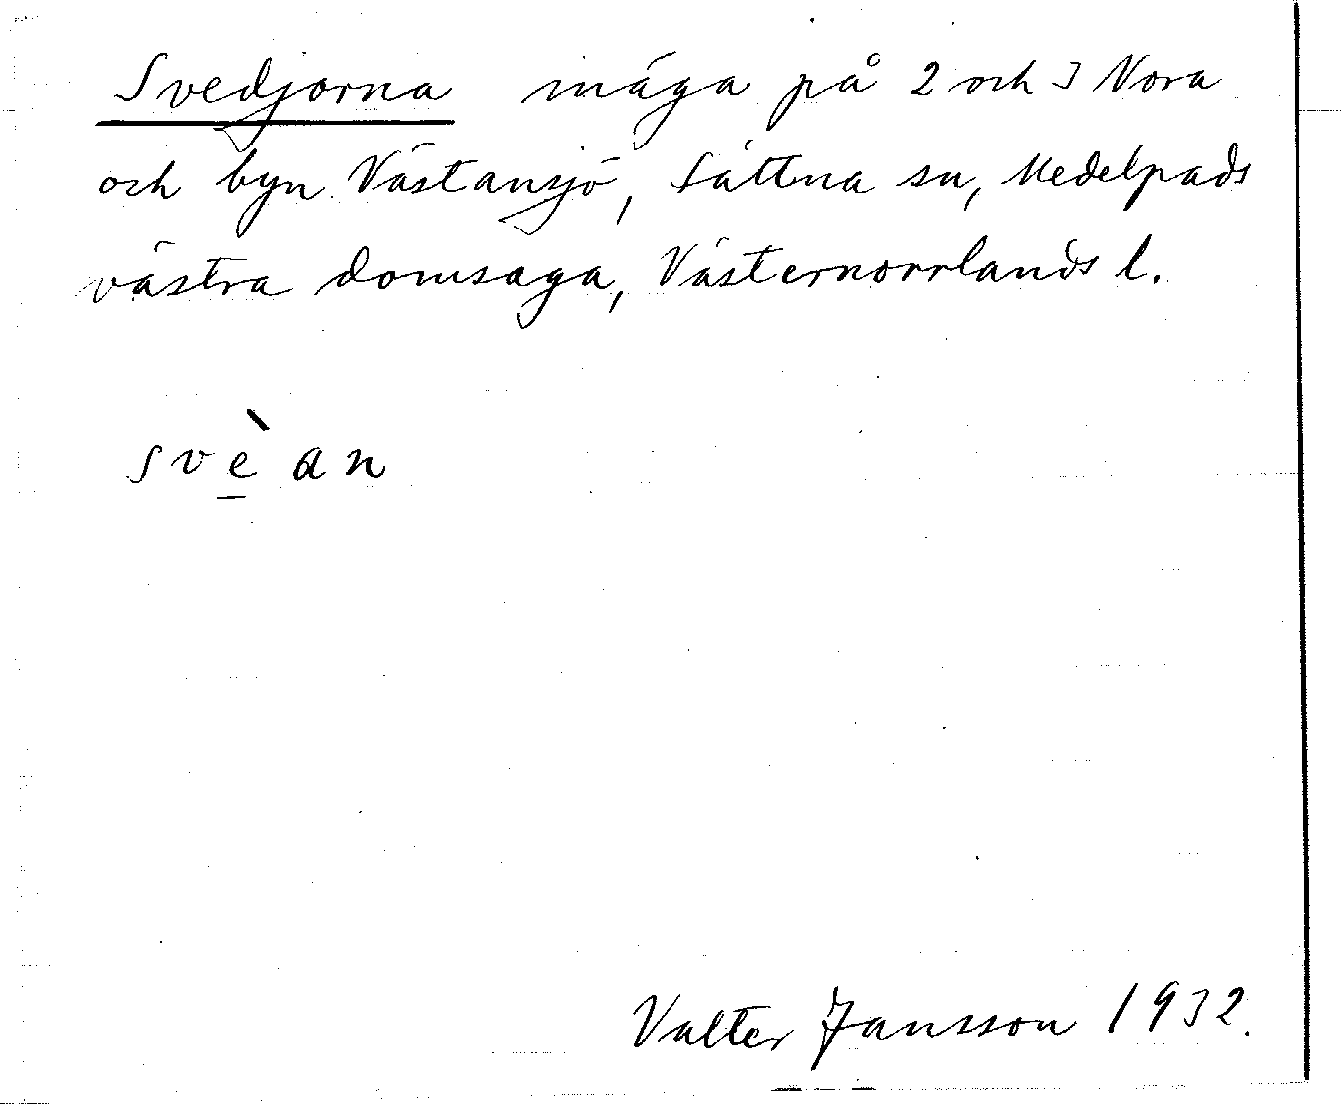 Svedjorna mäga på 2 och 3 Nora
och byn Västansjö, Sättna sn, Medelpads
västra domsaga, Västernorrlands l.
svèan
Valter Jansson 1932.